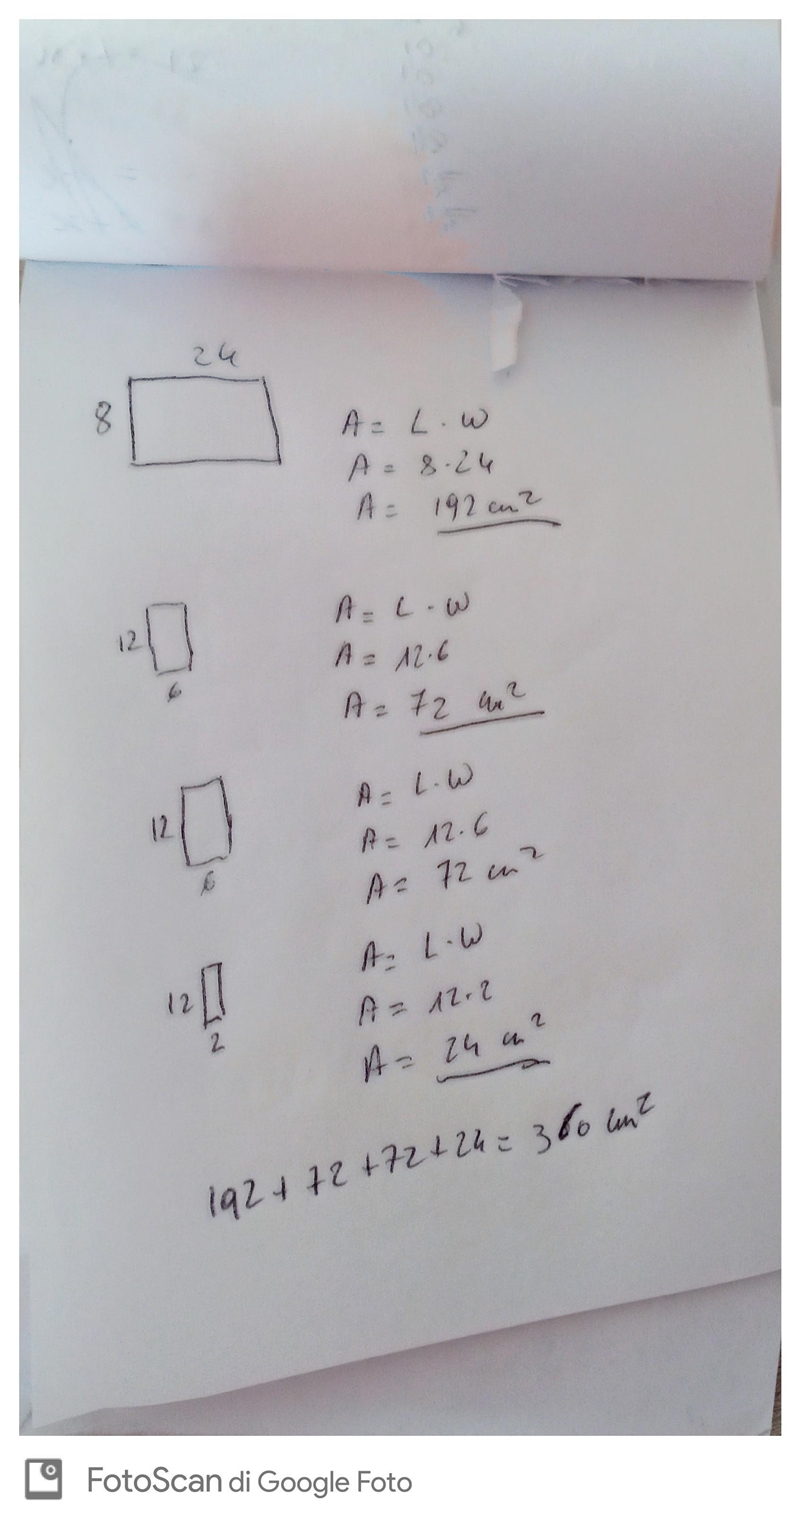 24
8
A = L · W
A = 8·24
A = 192 cm²
12
6
A = L · W
A = 12·6
A = 72 cm²
12
6
A = L·W
A = 12·6
A = 72 cm²
12
2
A = L·W
A = 12·2
A = 24 cm²
192 + 72 + 72 + 24 = 360 cm²
FotoScan di Google Foto